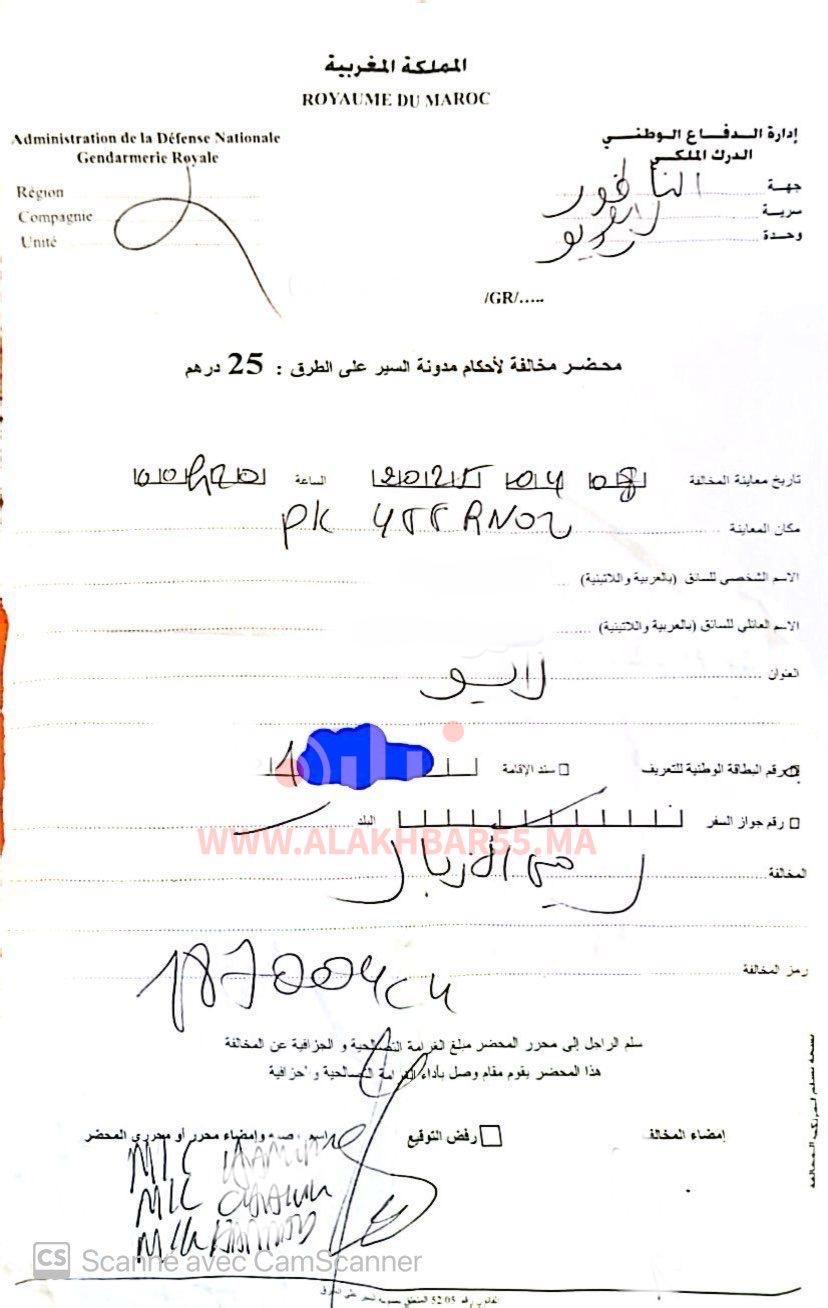 المملكة المغربية
ROYAUME DU MAROC
Administration de la Défense Nationale
Gendarmerie Royale
Région
Compagnie
Unité
إدارة الدفاع الوطني
الدرك الملكي
جهة الناظور
سرية
وحدة
/GR/.....
محضر مخالفة لأحكام مدونة السير على الطرق : 25 درهم
تاريخ معاينة المخالفة 08 04 2025 الساعة
مكان المعاينة PK 455 RN02
الاسم الشخصي للسائق (بالعربية واللاتينية)
الاسم العائلي للسائق (بالعربية واللاتينية)
العنوان
رقم البطاقة الوطنية للتعريف سند الإقامة
رقم جواز السفر البلد
WWW.ALAKHBAR55.MA
المخالفة رمي الأزبال
رمز المخالفة 187004C4
سلم الراجل إلى محرر المحضر مبلغ الغرامة التصالحية و الجزافية عن المخالفة
هذا المحضر يقوم مقام وصل بأداء الغرامة التصالحية و
إمضاء المخالف رفض التوقيع وإمضاء محرر أو محرري المحضر
CS Scanné avec CamScanner